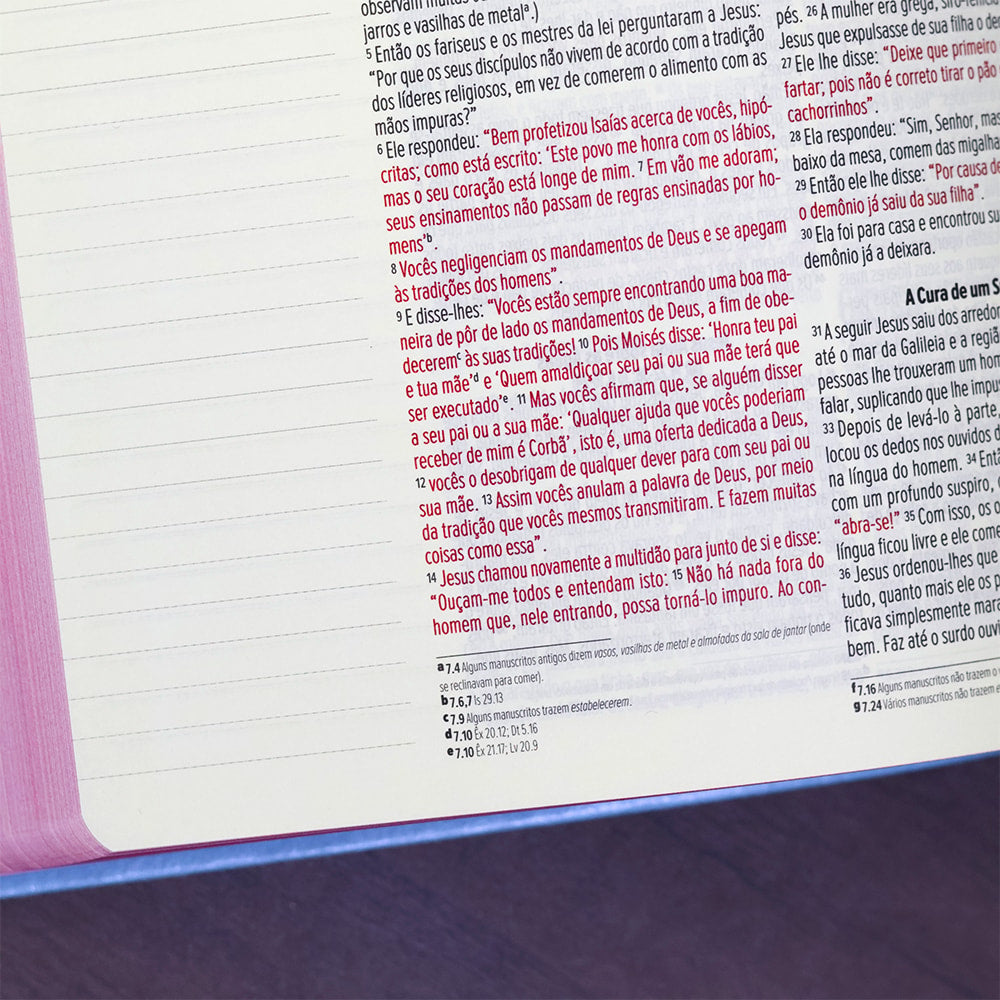 jarros e vasilhas de metalª.)
5 Então os fariseus e os mestres da lei perguntaram a Jesus:
“Por que os seus discípulos não vivem de acordo com a tradição
dos líderes religiosos, em vez de comerem o alimento com as
mãos impuras?”
6 Ele respondeu: “Bem profetizou Isaías acerca de vocês, hipó-
critas; como está escrito: ‘Este povo me honra com os lábios,
mas o seu coração está longe de mim. 7 Em vão me adoram;
seus ensinamentos não passam de regras ensinadas por ho-
mens’b.
8 Vocês negligenciam os mandamentos de Deus e se apegam
às tradições dos homens”.
9 E disse-lhes: “Vocês estão sempre encontrando uma boa ma-
neira de pôr de lado os mandamentos de Deus, a fim de obe-
deceremc às suas tradições! 10 Pois Moisés disse: ‘Honra teu pai
e tua mãe’d e ‘Quem amaldiçoar seu pai ou sua mãe terá que
ser executado’e. 11 Mas vocês afirmam que, se alguém disser
a seu pai ou a sua mãe: ‘Qualquer ajuda que vocês poderiam
receber de mim é Corbã’, isto é, uma oferta dedicada a Deus,
12 vocês o desobrigam de qualquer dever para com seu pai ou
sua mãe. 13 Assim vocês anulam a palavra de Deus, por meio
da tradição que vocês mesmos transmitiram. E fazem muitas
coisas como essa”.
14 Jesus chamou novamente a multidão para junto de si e disse:
“Ouçam-me todos e entendam isto: 15 Não há nada fora do
homem que, nele entrando, possa torná-lo impuro. Ao con-
a 7.4 Alguns manuscritos antigos dizem vasos, vasilhas de metal e almofadas da sala de jantar (onde
se reclinavam para comer).
b 7.6,7 Is 29.13
c 7.9 Alguns manuscritos trazem estabelecerem.
d 7.10 Êx 20.12; Dt 5.16
e 7.10 Êx 21.17; Lv 20.9
pés. 26 A mulher era grega,
Jesus que expulsasse de sua filha o
27 Ele lhe disse: “Deixe que primeiro
fartar; pois não é correto tirar o pão
cachorrinhos”.
28 Ela respondeu: “Sim, Senhor, mas
baixo da mesa, comem das
29 Então ele lhe disse: “Por causa
o demônio já saiu da sua filha”.
30 Ela foi para casa e encontrou
demônio já a deixara.
A Cura de um
31 A seguir Jesus saiu dos
até o mar da Galileia e a
pessoas lhe trouxeram um
falar, suplicando que lhe
33 Depois de levá-lo à parte,
locou os dedos nos ouvidos
na língua do homem. 34
com um profundo suspiro,
“abra-se!” 35 Com isso, os
língua ficou livre e ele
36 Jesus ordenou-lhes que
tudo, quanto mais ele os
ficava simplesmente
bem. Faz até o surdo
f 7.16 Alguns manuscritos não trazem o
g 7.24 Vários manuscritos não trazem